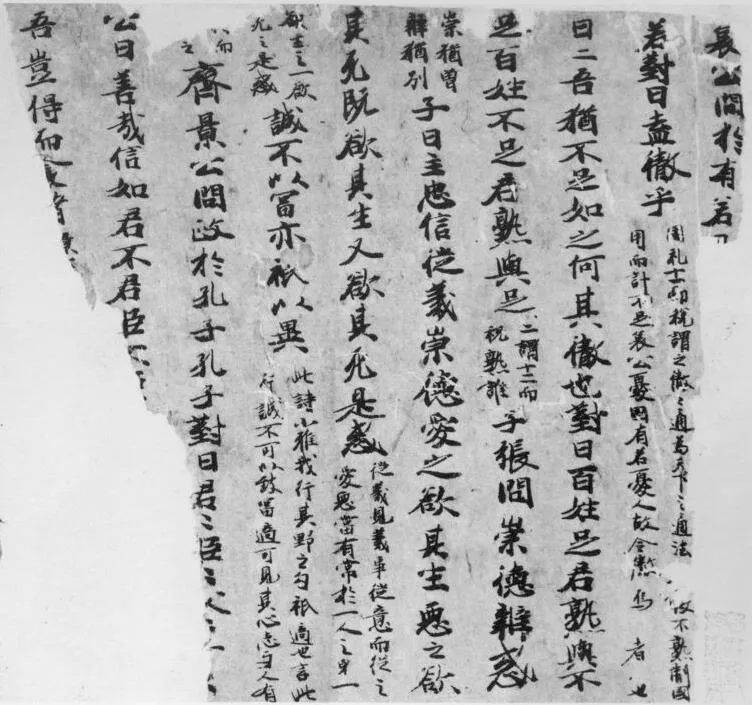 哀公問於有若
若對曰盍徹乎
周礼十一而稅謂之徹〻通為天下之通法 不熟制國
用而計不足哀公憂國有若憂人故令 焉者也
曰二吾猶不足如之何其徹也對曰百姓足君熟與不
足百姓不足君熟與足
二謂十二而
稅熟誰
子張問崇德辨惑
崇猶曾
辨猶別
子曰主忠信從義崇德愛之欲其生惡之欲
其死既欲其生又欲其死是惑
從義見義事從意而從之
愛惡當有常於一人之身一
欲生之一欲
死之是惑
誠不以冨亦祇以異
此詩小雅我行其野之句祇適也言此
行誠不可以致冨適可見其心志与人有
而
之
齊景公問政於孔子孔子對曰君〻臣〻父〻
公曰善哉信如君不君臣不
吾豈得而食諸